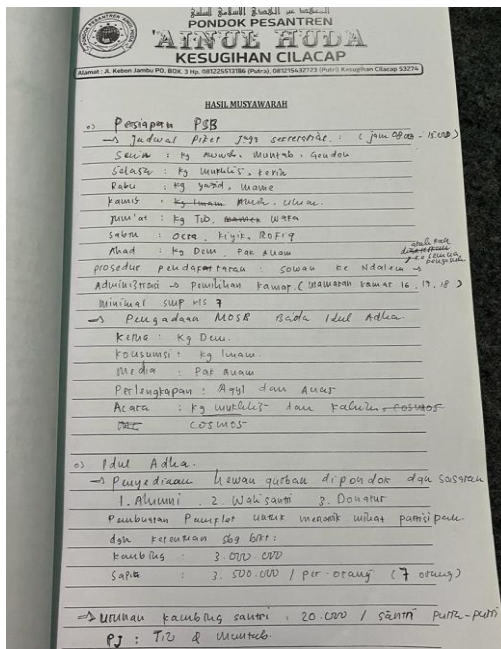 PONDOK PESANTREN
'AINUL HUDA
KESUGIHAN CILACAP
Alamat : Jl. Kebon Jambu PO. BOX. 3 Hp. 081225513186 (Putra), 081215432723 (Putri) Kesugihan Cilacap 53274
HASIL MUSYAWARAH
o) Persiapan PSB
→ Jadwal Piket Jaga secretariat : (jam 08.00 - 15.00)
Senin : Kg , Muntab, Gendon
Selasa : Kg Mukhlis, Kevin
Rabu : Kg Yazid, Mame
Kamis : Kg Imam
Jum'at : Kg Tio, Wafa
Sabtu : Ocra, Kiyik, Rofiq
Ahad : Kg Deni, Pak Anam
prosedur pendaftaran : sowan ke Ndalem →
Administrasi → Pemilihan kamar. ( kamar 16, 17, 18 )
Minimal SMP KLS 7
→ Pengadaan MOSB Bada Idul Adha.
Ketua : Kg Deni.
Konsumsi : Kg Imam.
Media : Pak Anam
Perlengkapan : Aqyl dan Anas
Acara : Kg Mukhlis dan COSMOS
COSMOS
o) Idul Adha.
→ Penyediaan hewan qurban dipondok dgn sasaran
1. Alumni . 2. Wali santri 3. Donatur
Pembuatan Pamflet untuk menarik minat partisipan.
dgn ketentuan sbg bkt :
Kambing : 3.000.000
Sapi : 3.500.000 / per-orang (7 orang)
→ Urunan kambing santri : 20.000 / santri putra-putri
PJ : Tio & Muntab.